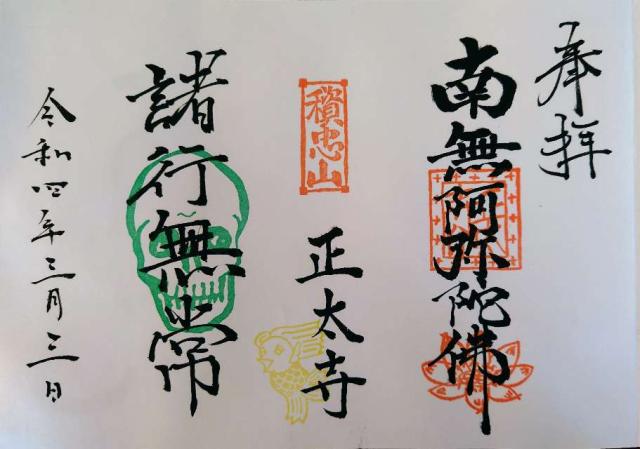 奉拝
南無阿弥陀佛
積忠山
正太寺
諸行無常
令和四年三月三日